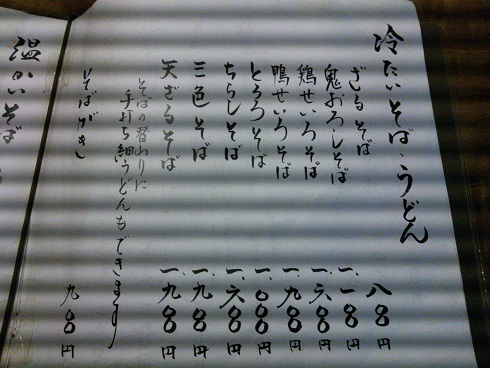 冷たいそば・うどん
ざるそば 八〇〇円
鬼おろしそば 一、一〇〇円
鶏せいろそば 一、六〇〇円
鴨せいろそば 一、九〇〇円
とろろそば 一、〇〇〇円
ちらしそば 一、六〇〇円
三色そば 一、九〇〇円
天ざるそば 一、九〇〇円
そばの替わりに
手打ち細うどんもできます
そばがき 九〇〇円
温かいそば